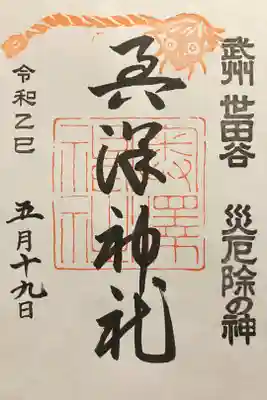 武州 世田谷 災厄除の神
奥澤神社
奥澤
神社
令和乙巳 五月十九日